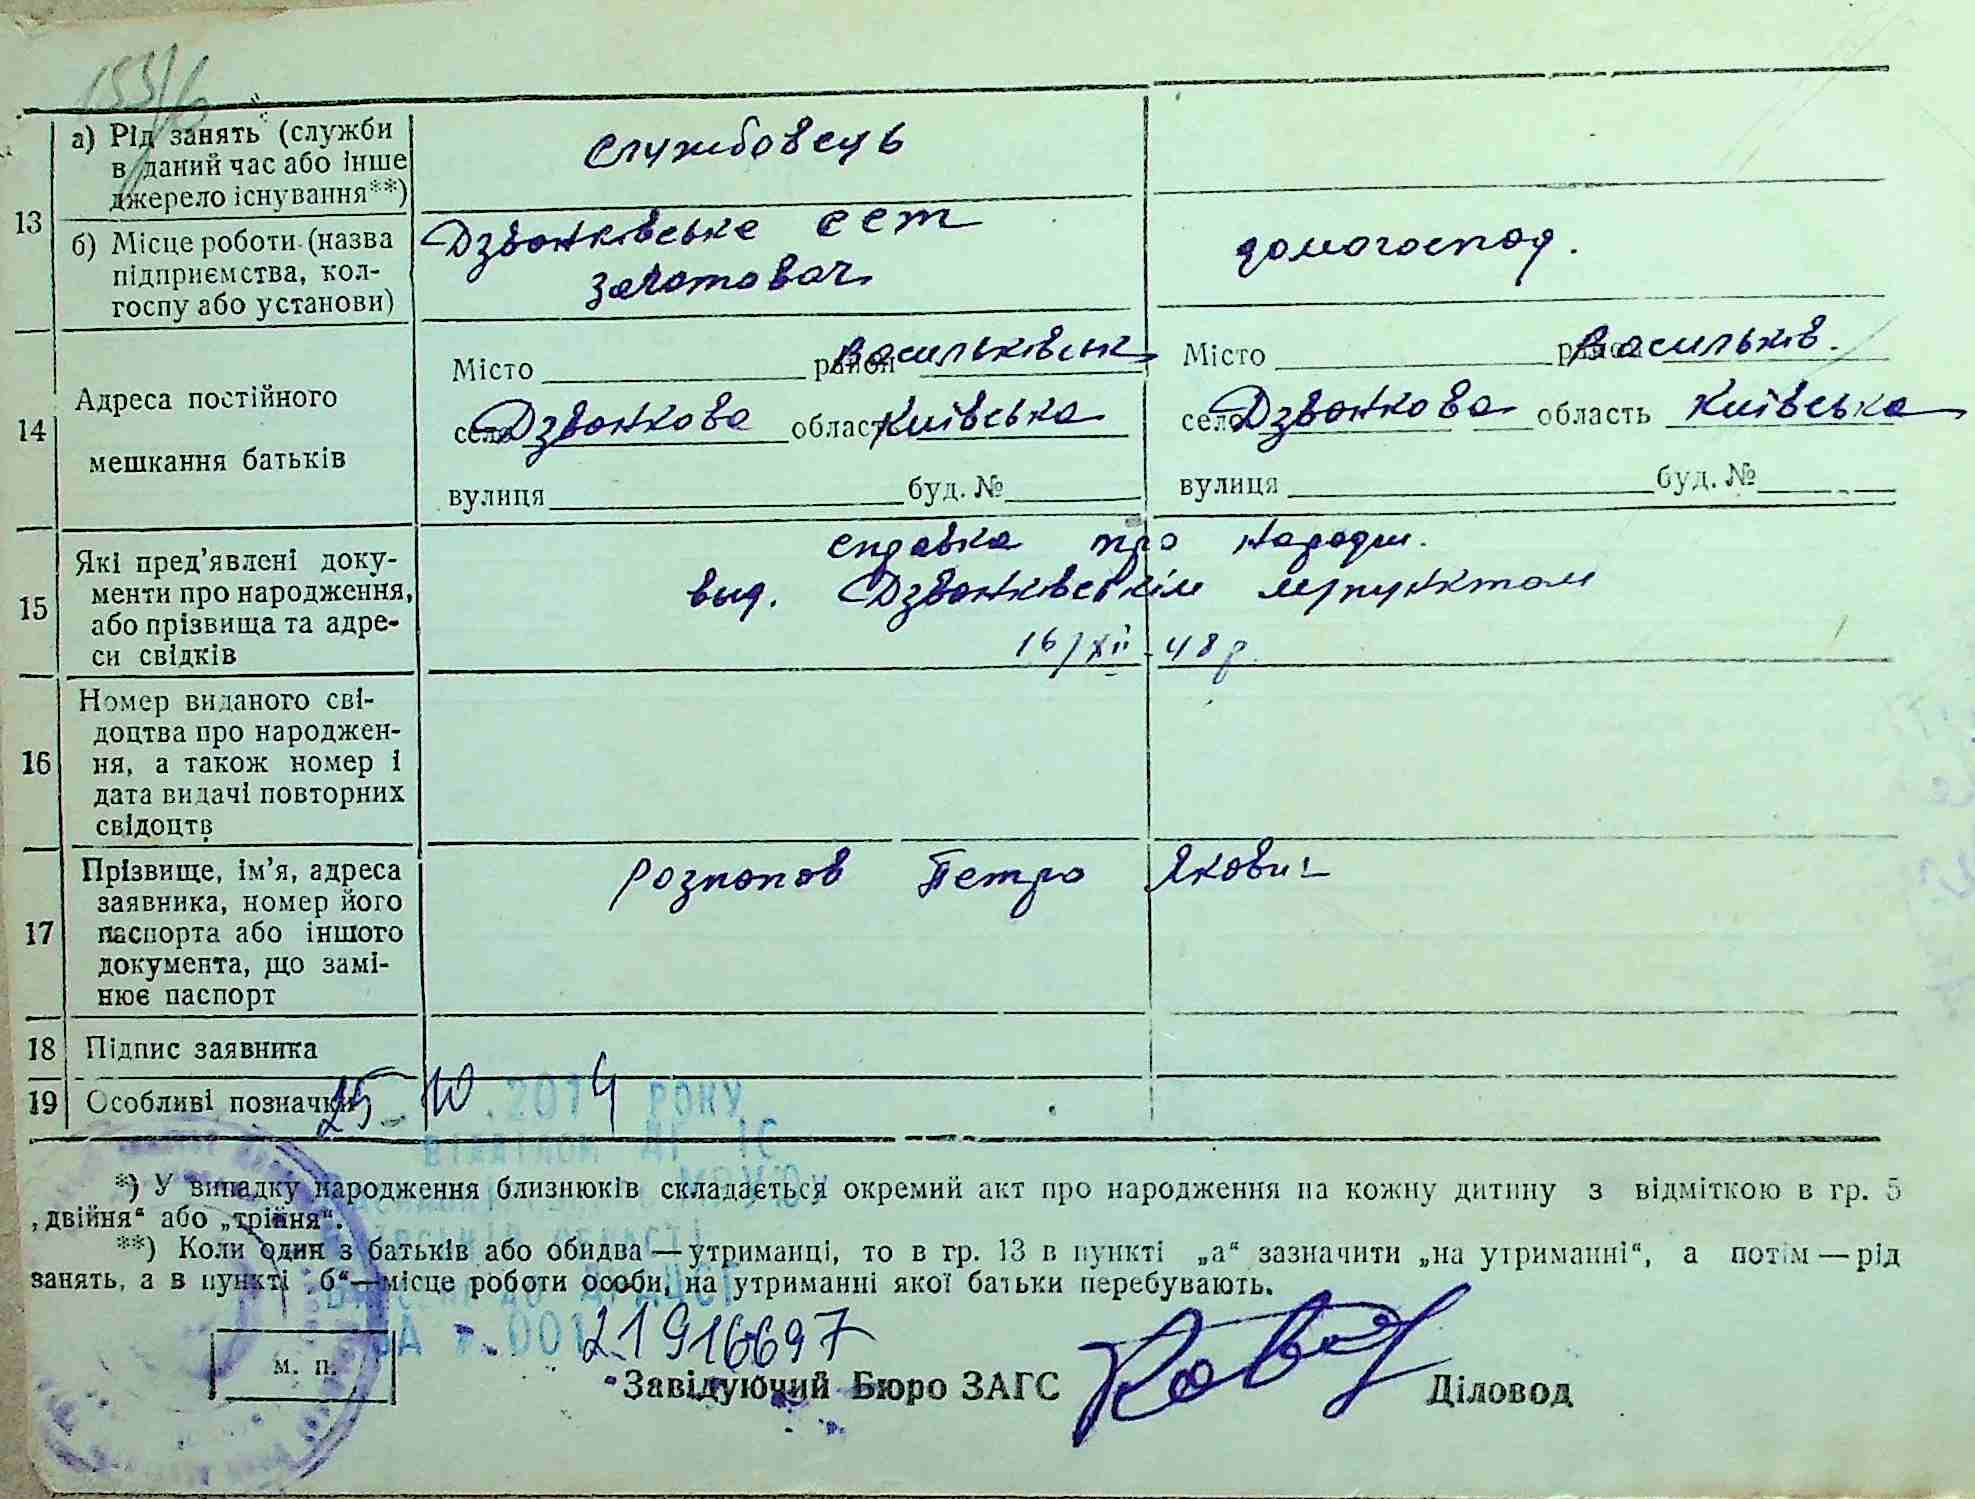 13
а) Рід занять (служби
в даний час або інше
джерело існування**)
службовець
б) Місце роботи (назва
підприємства, кол-
госпу або установи)
Дзвонківське ССТ
заготовач
домогоспод.
14
Адреса постійного
мешкання батьків
Місто район Васильківськ
село Дзвонкова область Київська
вулиця буд. №
Місто район Васильків.
село Дзвонкова область Київська
вулиця буд. №
15
Які пред’явлені доку-
менти про народження,
або прізвища та адре-
си свідків
справка про народж.
выд. Дзвонківскім медпунктом
16/XII-48 р.
16
Номер виданого сві-
доцтва про народжен-
ня, а також номер і
дата видачі повторних
свідоцтв
17
Прізвище, ім’я, адреса
заявника, номер його
паспорта або іншого
документа, що замі-
нює паспорт
Розпопов Петро Якович
18 Підпис заявника
19 Особливі позначки
25 10 .2014 РОКУ
*) У випадку народження близнюків складається окремий акт про народження на кожну дитину з відміткою в гр. 5
„двійня“ або „трійня“.
**) Коли один з батьків або обидва — утриманці, то в гр. 13 в пункті „а“ зазначити „на утриманні“, а потім — рід
занять, а в пункті „б“ — місце роботи особи, на утриманні якої батьки перебувають.
ЗА № 00121916697
м. п.
Завідуючий Бюро ЗАГС
Діловод